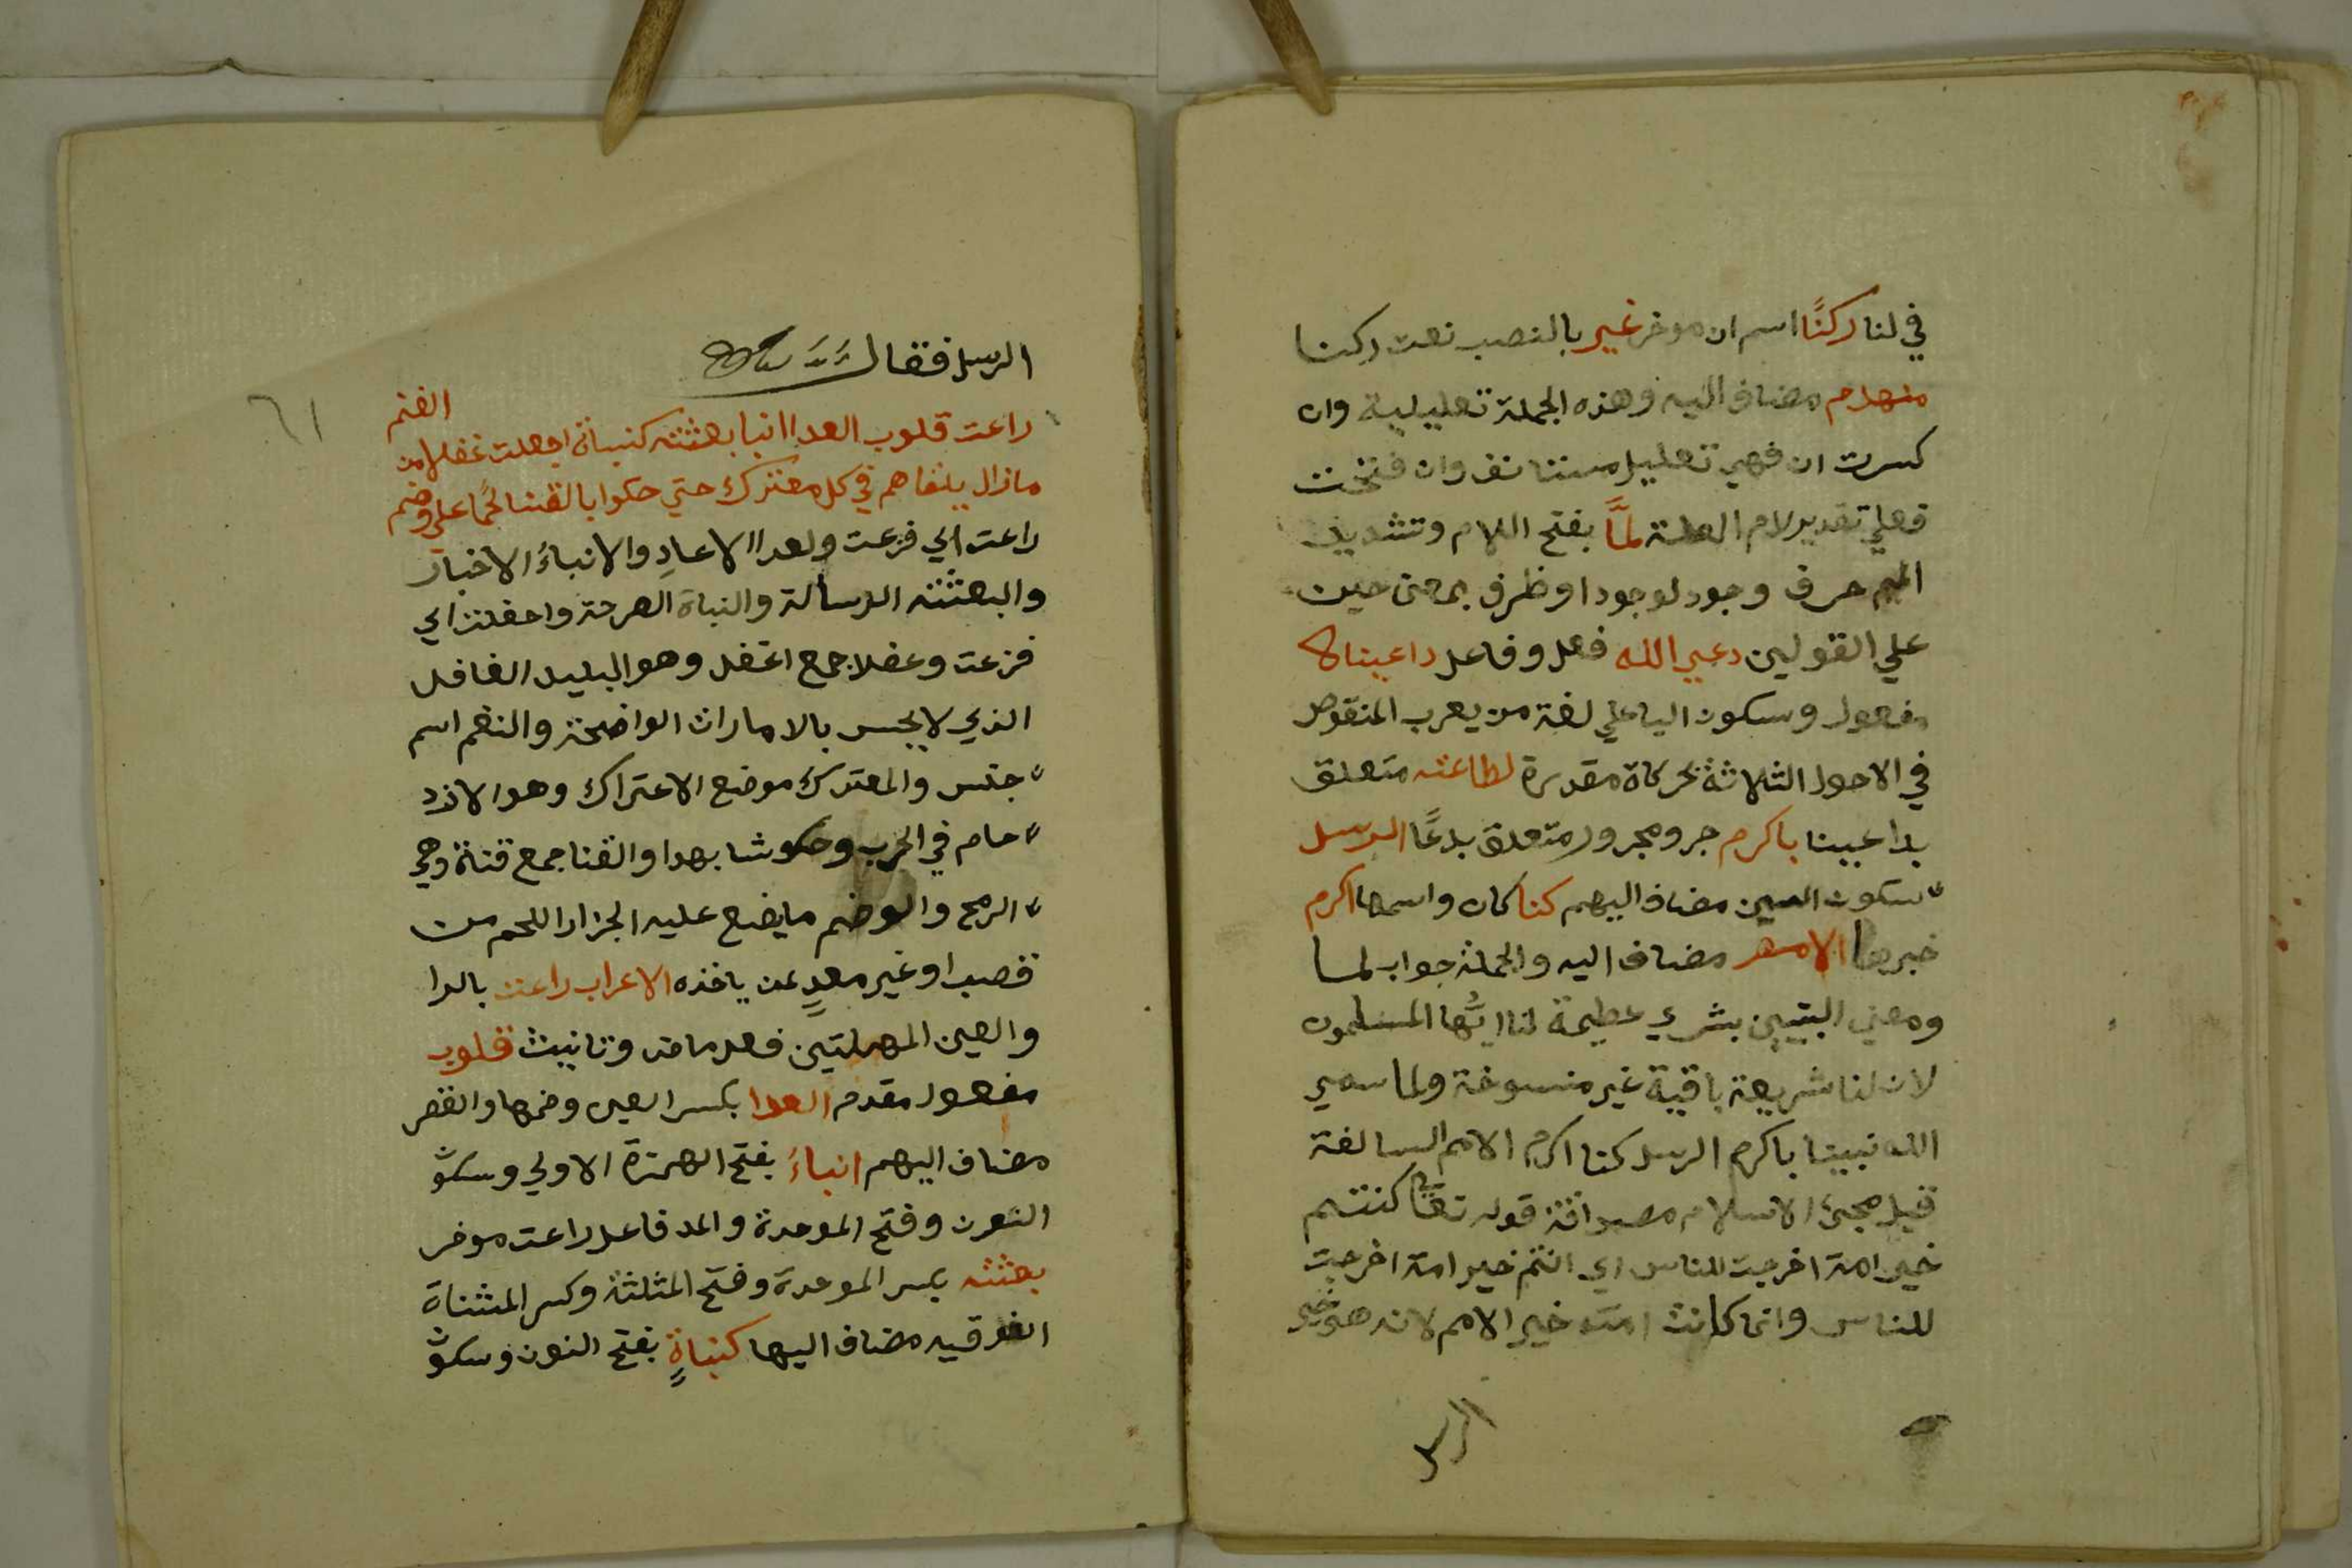 في لنا ركنًا اسم ان موخر غير بالنصب نعت ركنا
منهدم مضاف اليه وهذه الجملة تعليلية وان
كسرت ان فهي تعليل مستانف وان فتحت
فعلي تقدير لام العلة لمَّا بفتح اللام وتشديد
الميم حرف وجود لوجود او ظرف بمعنى حين
علي القولين دعي الله فعل وفاعل داعينا
مفعول وسكون اليا علي لغة من يعرب المنقوص
في الاحول الثلاثة بحركاة مقدرة لطاعته متعلق
بداعينا باكرم جر ومجرور متعلق بدعًا الرسل
بسكون السين مضاف اليهم كنا كان واسمها اكرم
خبرها الامم مضاف اليه والجملة جواب لما
ومعني البيتين بشري عظيمة لنا ايُّها المسلمون
لان لنا شريعة باقية غير منسوخة ولما سمي
الله نبينا باكرم الرسل كنا اكرم الامم السالفة
قبل مجئ الاسلام مصداقة قوله تعا كنتم
خير امة اخرجت للناس اي انتم خير امة اخرجت
للناس وانما كانت امته خير الامم لانه هو خير
الرسل
٦١
الرسل فقال
راعت قلوب العدا انبا بعثته كنباة اجفلت غفلا من الغنم
مازال يلقاهم في كل معترك حتي حكوا بالقنا لحمًا علي وضم
راعت اي فزعت ولعدا الاعادِ والانباءُ الاخبار
والبعثته الرسالة والنباة الصرخة واجفلت اي
فزعت وغفلا جمع اغفل وهو البليد الغافل
الذي لا يحس بالامارات الواضحة والنغم اسم
جنس والمعترك موضع الاعتراك وهو الازد
حام في الحرب وحكو شابهدا والقنا جمع قناة وهي
الرمح والوضم مايضع عليه الجزار اللحم من
قصب او غيره معدٍ لمن ياخذه الاعراب راعت بالرا
والعين المهملتين فعل ماض وتانيث قلوب
مفعول مقدم العدا بكسر العين وضمها والقصر
مضاف اليهم انباءُ بفتح الهمزة الاولي وسكون
النون وفتح الموحدة والمد فاعل راعت موخر
بعثته بكسر الموحدة وفتح المثلثة وكسر المثناة
الفوقيه مضاف اليها كنباةٍ بفتح النون وسكون